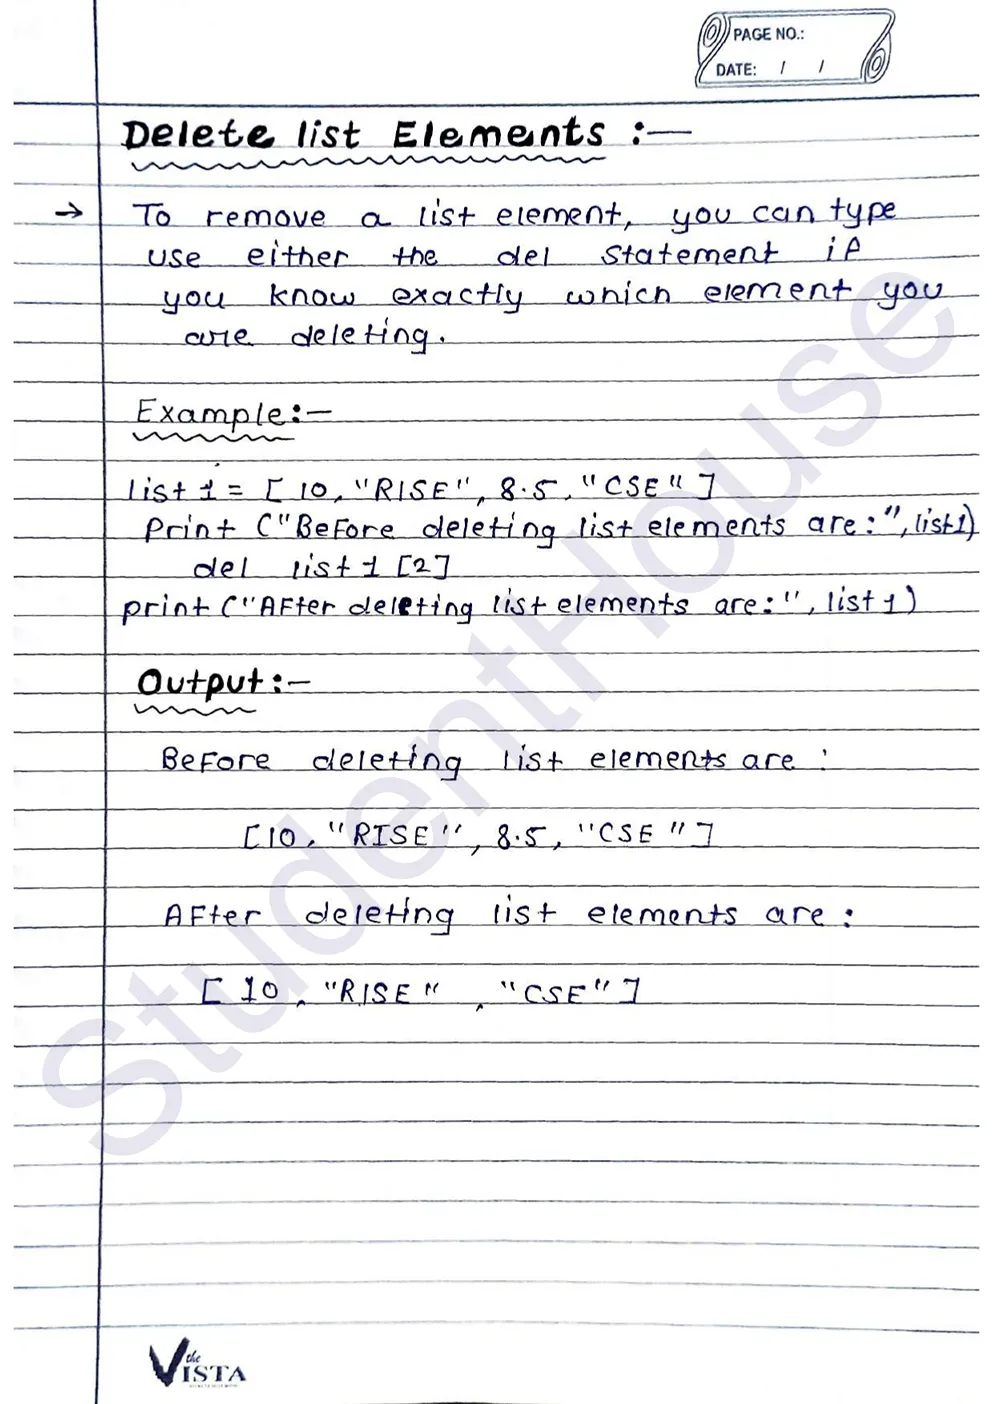 PAGE NO.:
DATE: / /
Delete list Elements :—
→ To remove a list element, you can type
use either the del statement if
you know exactly which element you
are deleting.
Example:—
list 1 = [ 10, "RISE", 8.5, "CSE" ]
Print ("Before deleting list elements are:", list1)
del list 1 [2]
print ("After deleting list elements are:", list 1)
Output:—
Before deleting list elements are :
[10, "RISE", 8.5, "CSE"]
After deleting list elements are:
[ 10, "RISE" , "CSE"]
StudentHouse
the
VISTA